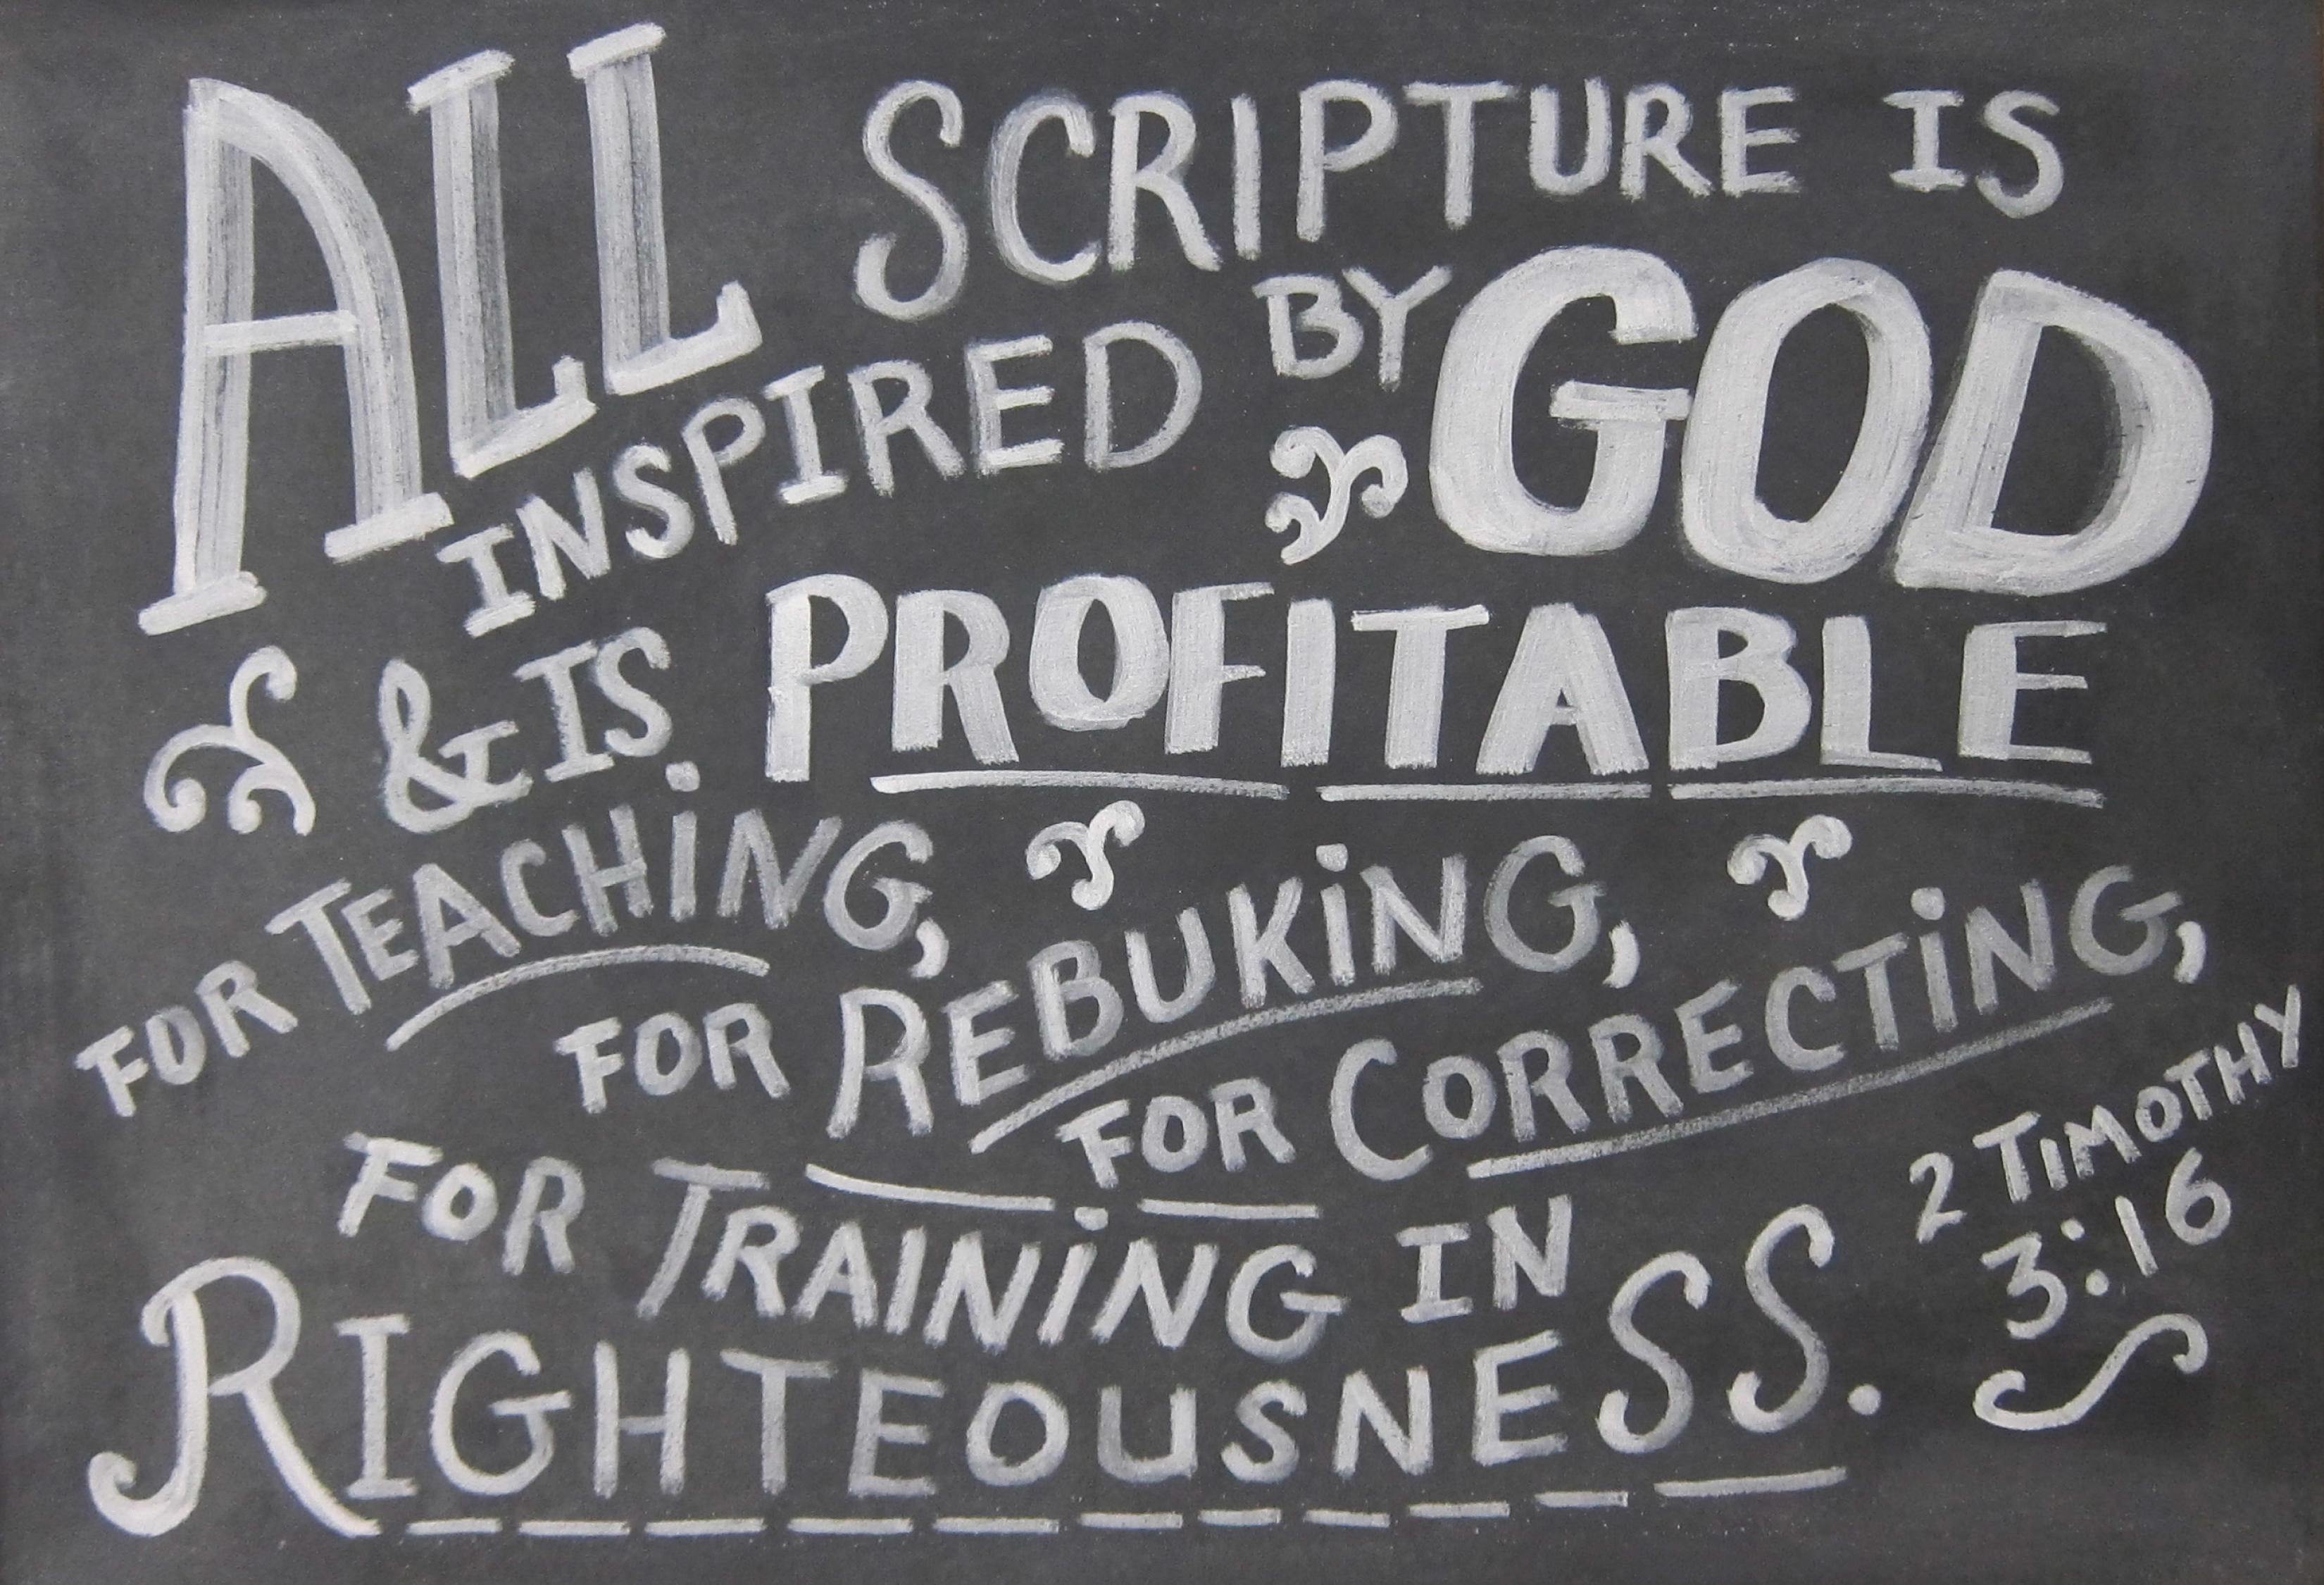 ALL SCRIPTURE IS
INSPIRED BY GOD
& IS PROFITABLE
FOR TEACHING,
FOR REBUKING,
FOR CORRECTING,
FOR TRAINING IN
RIGHTEOUSNESS.
2 TIMOTHY
3:16